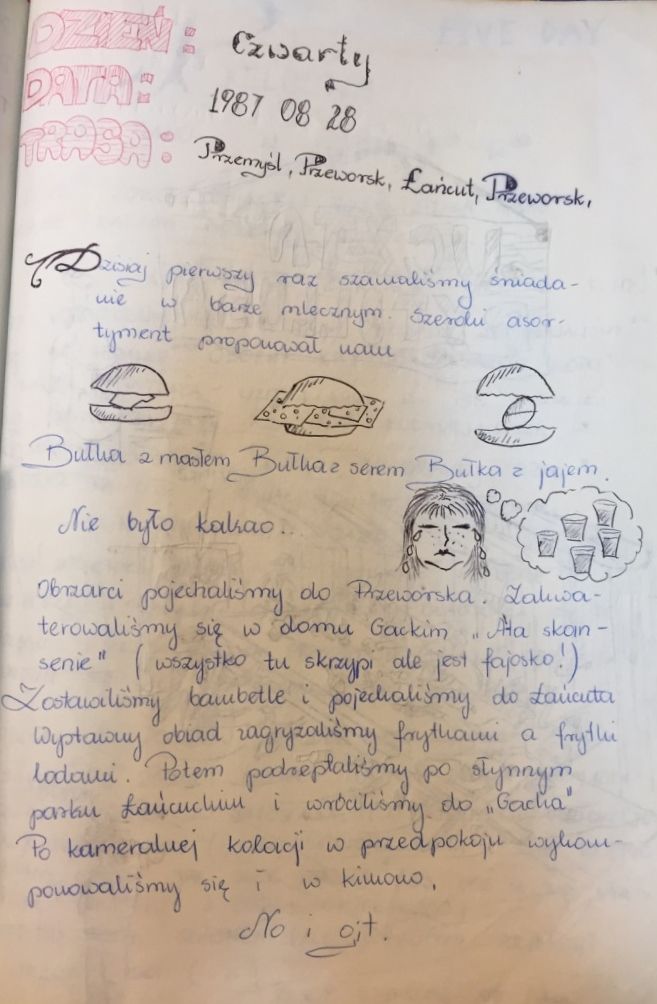 DZIEŃ: Czwarty
DATA: 1987 08 28
TRASA: Przemyśl, Przeworsk, Łańcut, Przeworsk,
Dzisiaj pierwszy raz szamaliśmy śniada-
nie w barze mlecznym. Szeroki asor-
tyment proponował nam
Bułka z masłem Bułka z serem Bułka z jajem.
Nie było kakao..
Obżarci pojechaliśmy do Przeworska. Zakwa-
terowaliśmy się w domu Gackim „Ała skan-
senie" (wszystko tu skrzypi ale jest fajosko!)
Zostawiliśmy bambetle i pojechaliśmy do Łańcuta
Wyptawny obiad zagryzaliśmy frytkami a frytki
lodami. Potem podreptaliśmy po słynnym
parku Łańcuckim i wróciliśmy do „Gacka"
Po kameralnej kolacji w przedpokoju wykom-
ponowaliśmy się i w kimono.
No i ojt.